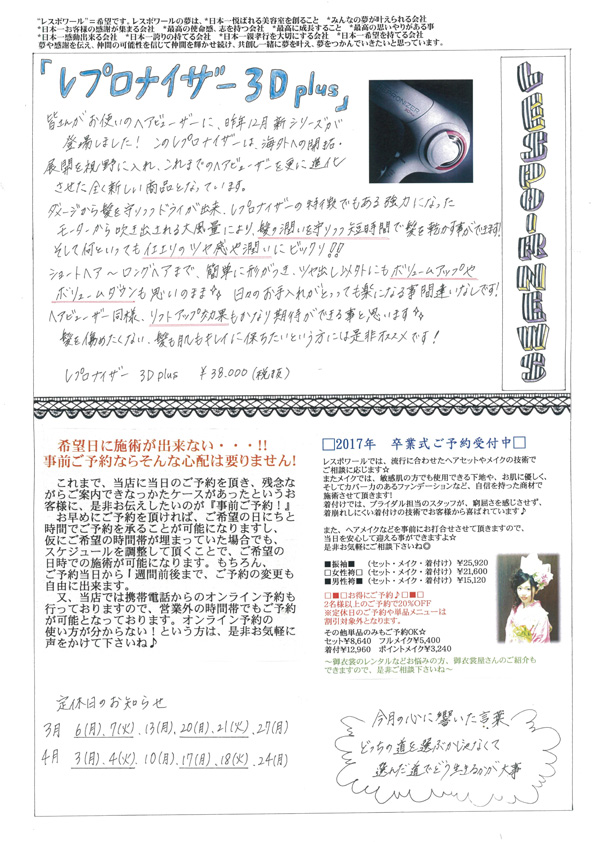 "レスポワール"=希望です。レスポワールの夢は、*日本一悦ばれる美容室を創ること *みんなの夢が叶えられる会社
*日本一お客様の感謝が集まる会社 *最高の使命感、志を持つ会社 *最高に成長すること *最高の思いやりがある事
*日本一感動出来る会社 *日本一誇りの持てる会社 *日本一親孝行を大切にする会社 *日本一希望を持てる会社
夢や感謝を伝え、仲間の可能性を信じて仲間を輝かせ続け、共創し一緒に夢を叶え、夢をつかんでいきたいと思っています。
「レプロナイザー3D plus」
皆さんがお使いのヘアビューザーに、昨年12月新シリーズが
登場しました！このレプロナイザーは、海外への開拓・
展開を視野に入れ、これまでのヘアビューザーを更に進化
させた全く新しい商品となっています。
ダメージから髪を守りつつドライが出来、レプロナイザーの特徴でもある強力になった
モーターから吹き出される大風量により、髪の潤いを守りつつ短時間で髪を乾かす事ができます!
そして何といっても仕上りのツヤ感や潤いにビックリ!!
ショートヘア〜ロングヘアまで、簡単に形がつき、ツヤ出し以外にもボリュームアップや
ボリュームダウンも思いのまま☆☆ 日々のお手入れがとっても楽になる事間違いなしです!
ヘアビューザー同様、リフトアップ効果もかなり期待ができる事と思います☆☆
髪を傷めたくない、髪も肌もキレイに保ちたいという方には是非オススメです！
レプロナイザー 3D plus ¥38.000(税抜)
LESPOIR NEWS
希望日に施術が出来ない・・・!!
事前ご予約ならそんな心配は要りません!
これまで、当店に当日のご予約を頂き、残念な
がらご案内できなっかたケースがあったというお
客様に、是非お伝えしたいのが『事前ご予約！』
お早めにご予約を頂ければ、ご希望の日にちと
時間でご予約を承ることが可能になりますし、
仮にご希望の時間帯が埋まっていた場合でも、
スケジュールを調整して頂くことで、ご希望の
日時での施術が可能になります。もちろん、
ご予約当日から1週間前後まで、ご予約の変更も
自由に出来ます。
又、当店では携帯電話からのオンライン予約も
行っておりますので、営業外の時間帯でもご予約
が可能となっております。オンライン予約の
使い方が分からない！という方は、是非お気軽に
声をかけて下さいね♪
□2017年 卒業式ご予約受付中□
レスポワールでは、流行に合わせたヘアセットやメイクの技術で
ご相談に応じます☆
またメイクでは、敏感肌の方でも使用できる下地や、お肌に優しく、
そしてカバー力のあるファンデーションなど、自信を持った商材で
施術させて頂きます!
着付けでは、ブライダル担当のスタッフが、窮屈さを感じさせず、
着崩れしにくい着付けの技術でお客様から喜ばれています♪
また、ヘアメイクなどを事前にお打合せさせて頂きますので、
当日を安心して迎える事ができますよ☆
是非お気軽にご相談下さいね◎
■振袖■ (セット・メイク・着付け) ¥25,920
□女性袴□ (セット・メイク・着付け) ¥21,600
■男性袴■ (セット・メイク・着付け) ¥15,120
□■□お得にご予約♪□■□
2名様以上のご予約で20%OFF
※定休日のご予約や単品メニューは
割引対象外となります。
その他単品のみもご予約OK☆
セット¥8,640 フルメイク¥5,400
着付け¥12,960 ポイントメイク¥3,240
〜御衣裳のレンタルなどお悩みの方、御衣裳屋さんのご紹介も
できますので、是非ご相談下さいね〜
定休日のお知らせ
3月 6(月).7(火).13(月).20(月).21(火).27(月)
4月 3(月).4(火).10(月).17(月).18(火).24(月)
今月の心に響いた言葉
どっちの道を選ぶかじゃなくて
選んだ道でどう生きるかが大事